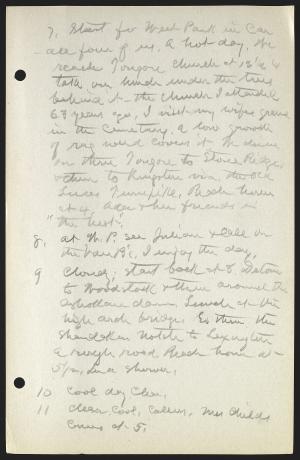 7, Start for West Park in Car
all four of us. A hot day. We
reach Tongore Church at 12 &
take our lunch under the trees
behind it - the church I attended
63 years ago, I visit my wifes grave
in the Cemetery. A low growth
of rag weed covers it. We drive
on thru Tongore to Stone Ridge
& then to Kingston via the old
Lucas Turnpike. Reach
at 4. Ada & her friends in
"the Nest".
8, At W. P. see Julian & call on
the Van B's, I enjoy the day,
9 Cloudy; start back at 8. Detour
to Woodstock & then around the
Ashokan dam. Lunch at the
high arch bridge. Go thru the
Shandaken Notch to Lexington
a rough road. Reach home at
5 p.m., in a shower.
10 Cool day Clear.
11 Clear, cool, Callers, Mrs Childs
comes at 5.